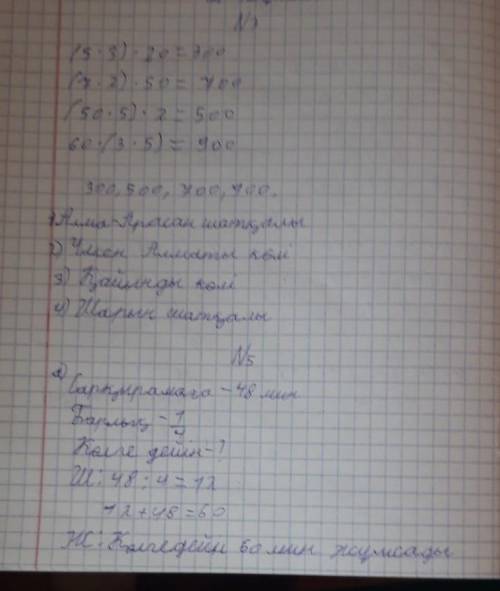 N1
(5 · 3) · 20 = 300
(7 · 2) · 50 = 700
(50 · 5) · 2 = 500
60 · (3 · 5) = 900
300, 500, 700, 900.
1) Алма-Арасан шатқалы
2) Үлкен Алматы көлі
3) Қайыңды көлі
4) Шарын шатқалы
N5
а) Сарқырамаға - 48 мин
Барлық - 1/4
Көлге дейін - ?
Ш: 48 : 4 = 12
12 + 48 = 60
Ж: Көлге дейін 60 мин жұмсады